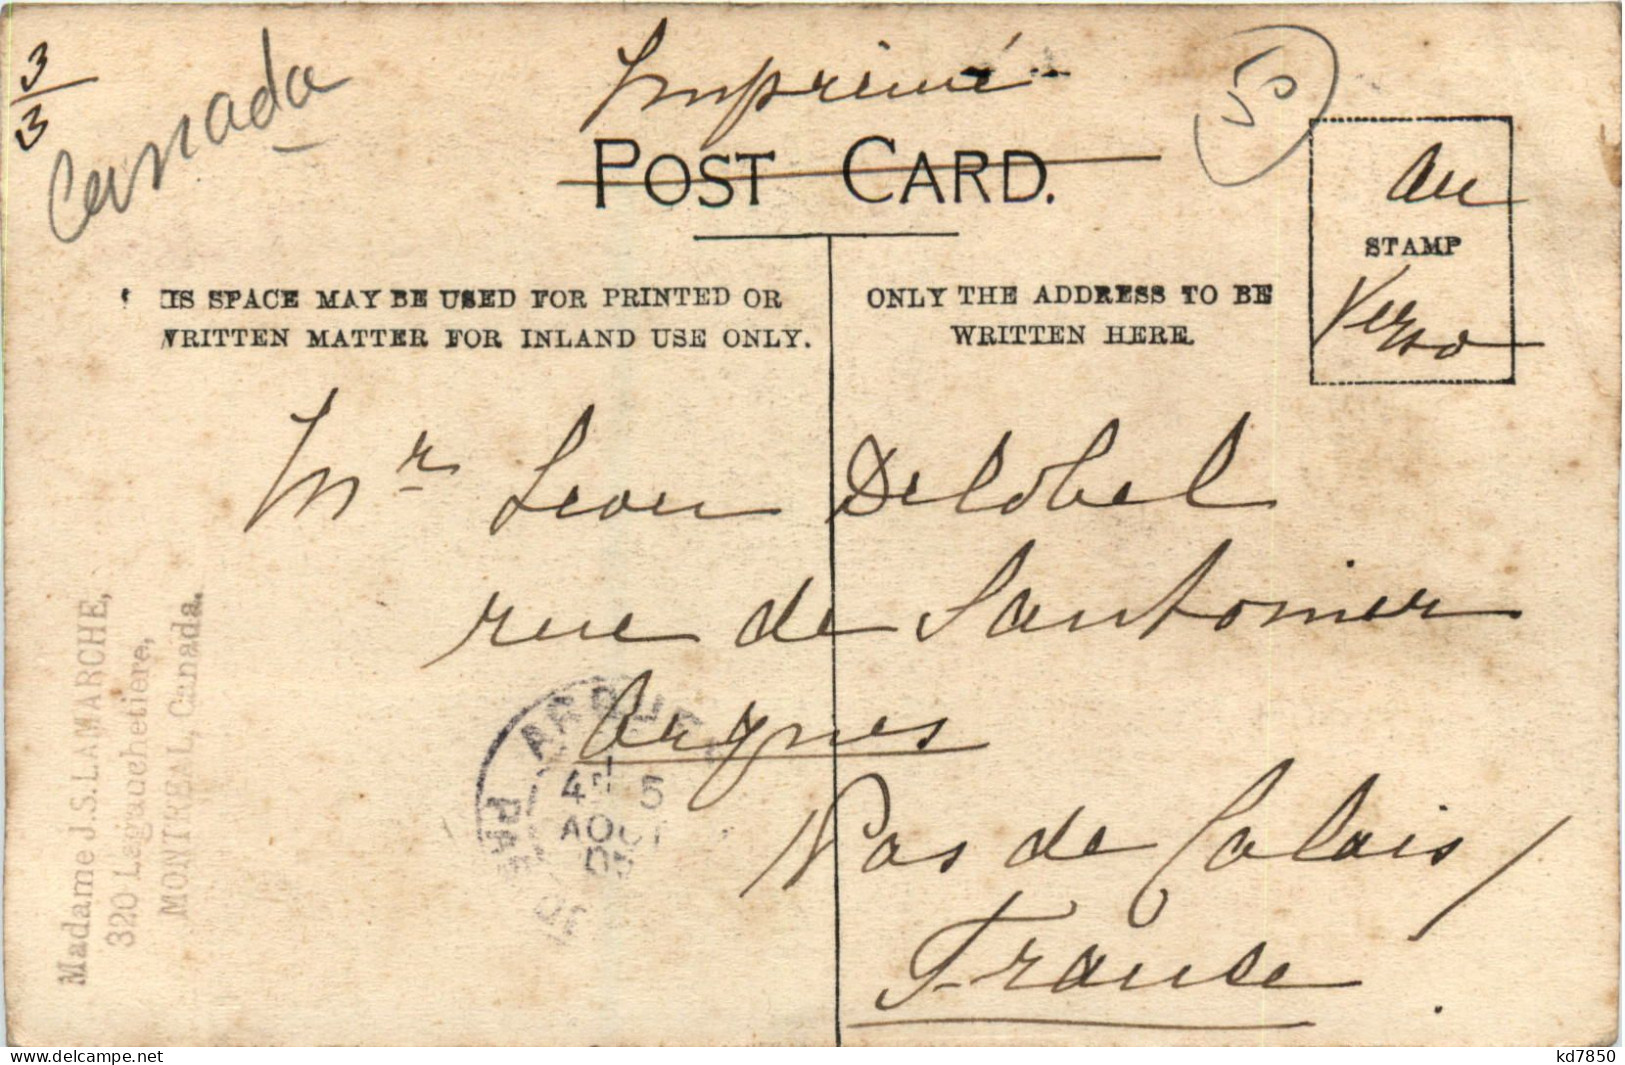 3/3
Canada
Imprimé
55
POST CARD.
au
STAMP
Verso
IS SPACE MAY BE USED FOR PRINTED OR
WRITTEN MATTER FOR INLAND USE ONLY.
ONLY THE ADDRESS TO BE
WRITTEN HERE.
Mr Leon Delobel
rue de Santomer
Arques
Pas de Calais
France
ARQUES
4E 5
AOUT
05
PAS DE
Madame J.S. LAMARCHE,
320 Lagauchetiere,
MONTREAL, Canada.
www.delcampe.net
kd7850